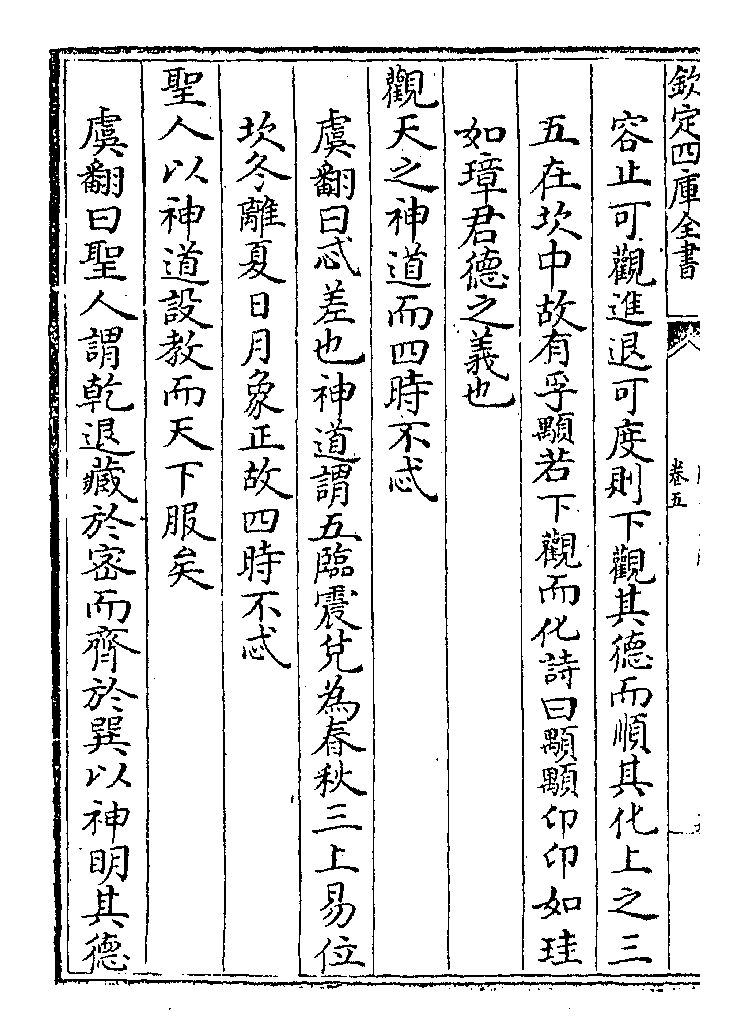 欽定四庫全書
卷五
容止可觀進退可度則下觀其德而順其化上之三
五在坎中故有孚顒若下觀而化詩曰顒顒卬卬如珪
如璋君德之義也
觀天之神道而四時不忒
虞翻曰忒差也神道謂五臨震兌為春秋三上易位
坎冬離夏日月象正故四時不忒
聖人以神道設教而天下服矣
虞翻曰聖人謂乾退藏於宻而齊於巽以神明其德